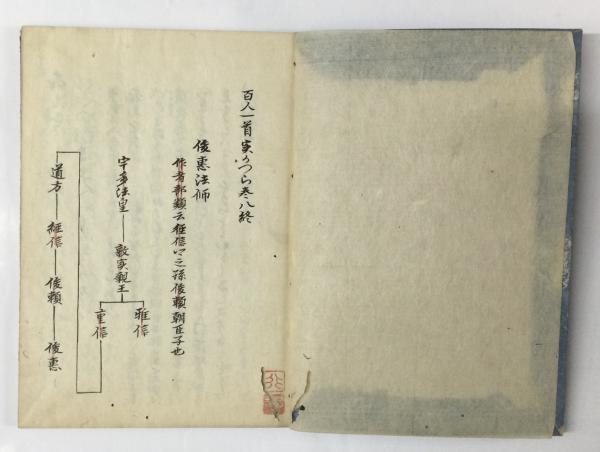 百人一首実かつら巻八終
俊惠法師
作者部類云經信卿之孫俊頼朝臣子也
宇多法皇―敦実親王
雅信
重信
道方―經信―俊頼―俊惠